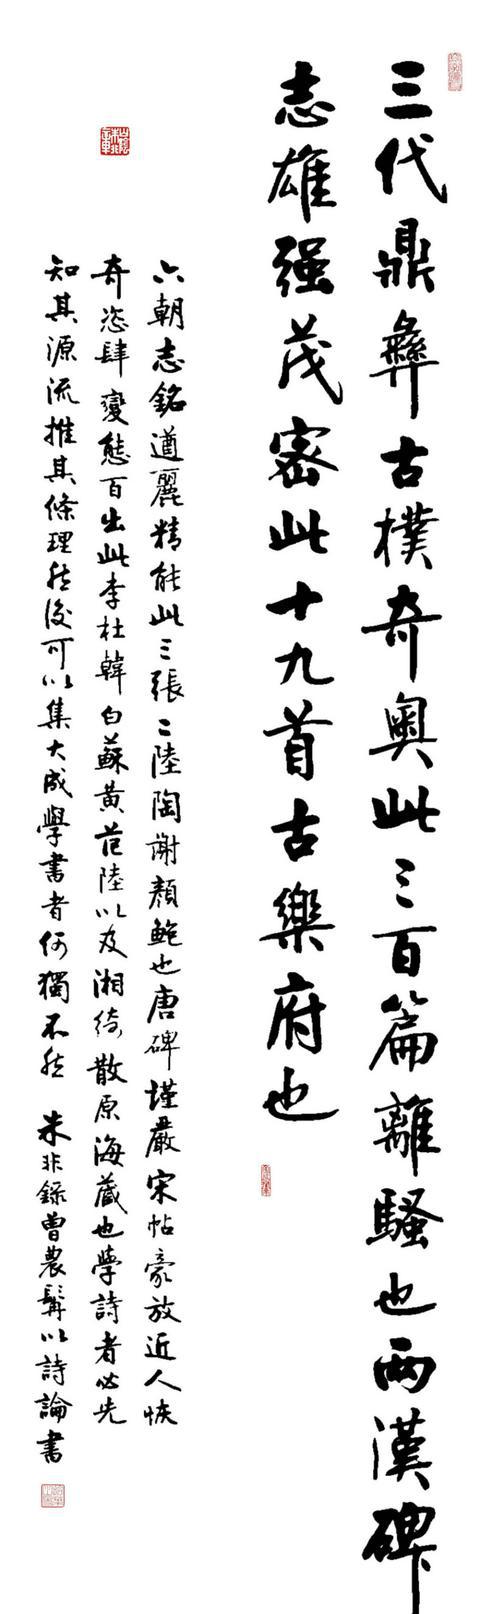 三代鼎彝古樸奇奧此三百篇離騷也兩漢碑
志雄强茂密此十九首古樂府也
六朝志銘遒麗精能此三張二陸陶謝顏鮑也唐碑謹嚴宋帖豪放近人恢
奇恣肆變態百出此李杜韓白蘇黃范陸以及湘綺散原海藏也學詩者必先
知其源流推其條理然後可以集大成學書者何獨不然 朱非錄曾農髯以詩論書